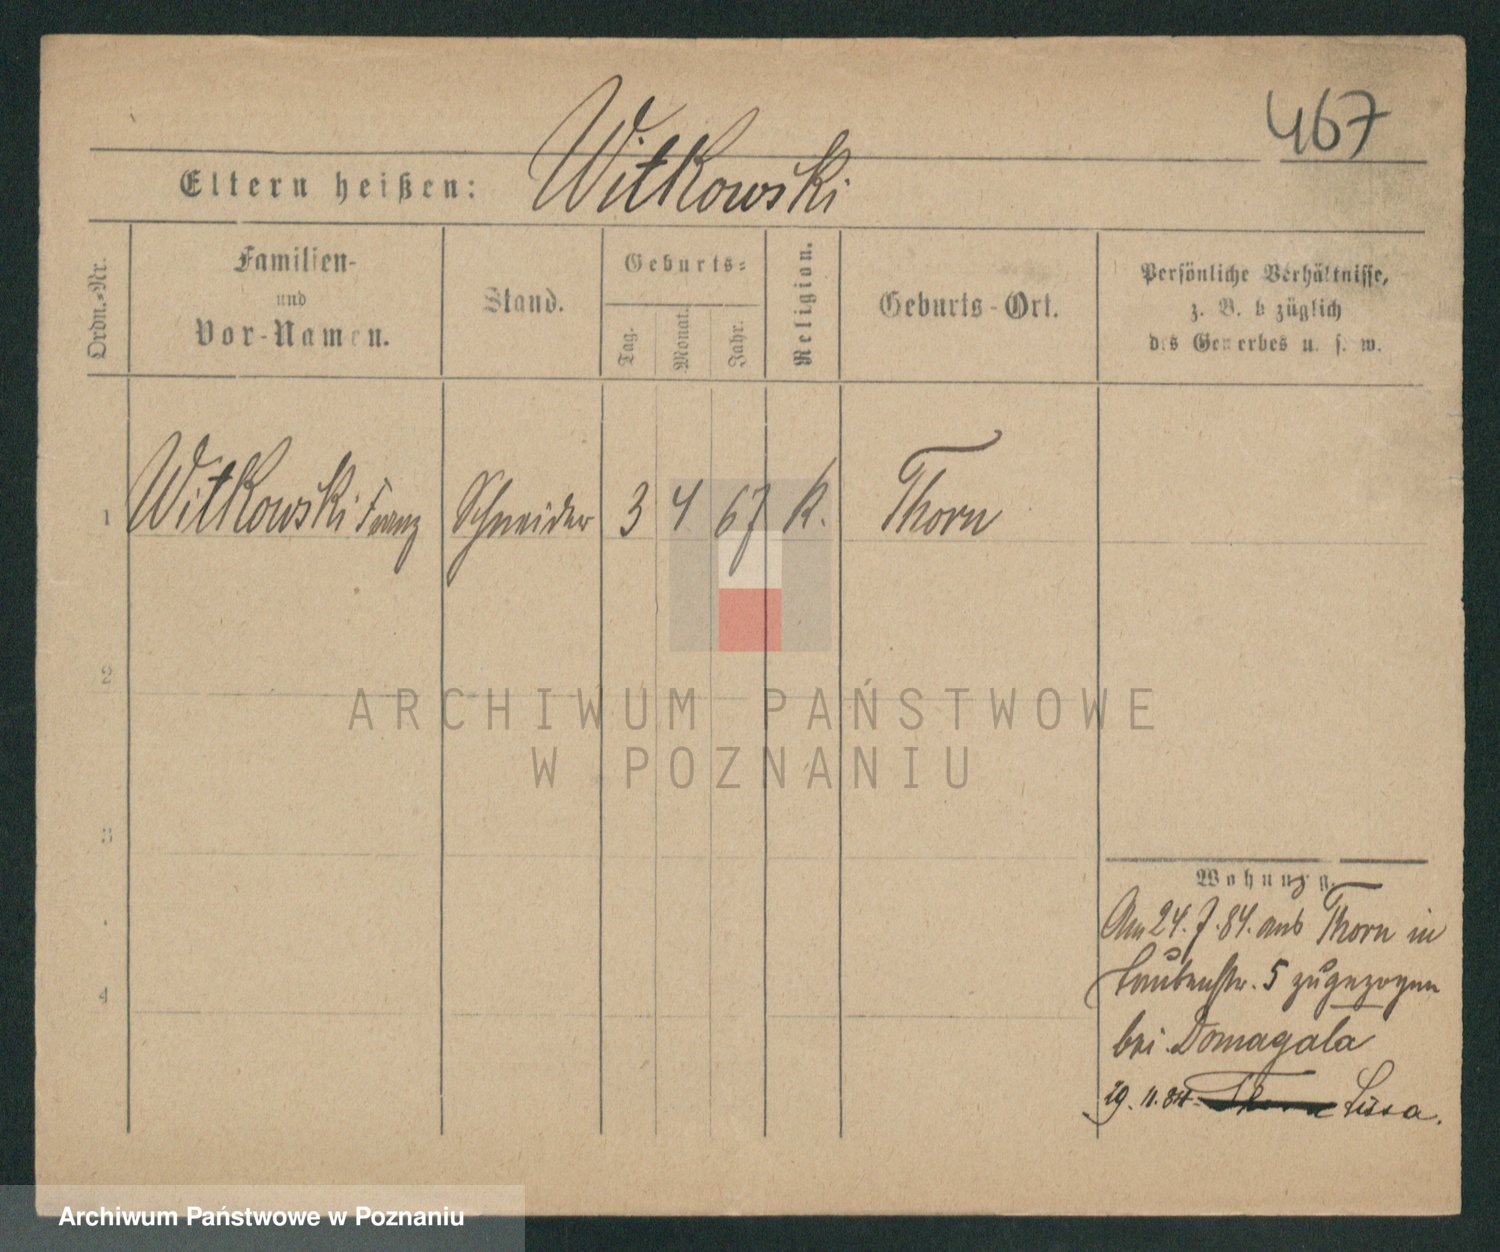 467
Eltern heißen: Witkowski
Ordn.-Nr.
Familien-
und
Vor-Namen.
Stand.
Geburts-
Tag.
Monat.
Jahr.
Religion.
Geburts-Ort.
Persönliche Verhältnisse,
z. B. bezüglich
des Gewerbes u. s. w.
1 Witkowski Franz Schneider 3 4 67 K. Thorn
2
3
4
Wohnung.
Am 24. 7. 84. aus Thorn in
Taubenstr. 5 zugezogen
bei Domagala
29. 11. 84. Lissa.
ARCHIWUM PAŃSTWOWE
W POZNANIU
Archiwum Państwowe w Poznaniu